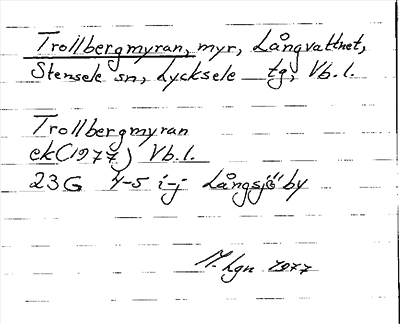 Trollbergmyran, myr, Långvattnet,
Stensele sn, Lycksele tg, Vb.l.
Trollbergmyran
ek(1977) Vb.l.
23G 4-5 i-j Långsjöby
M. Lgn 1977